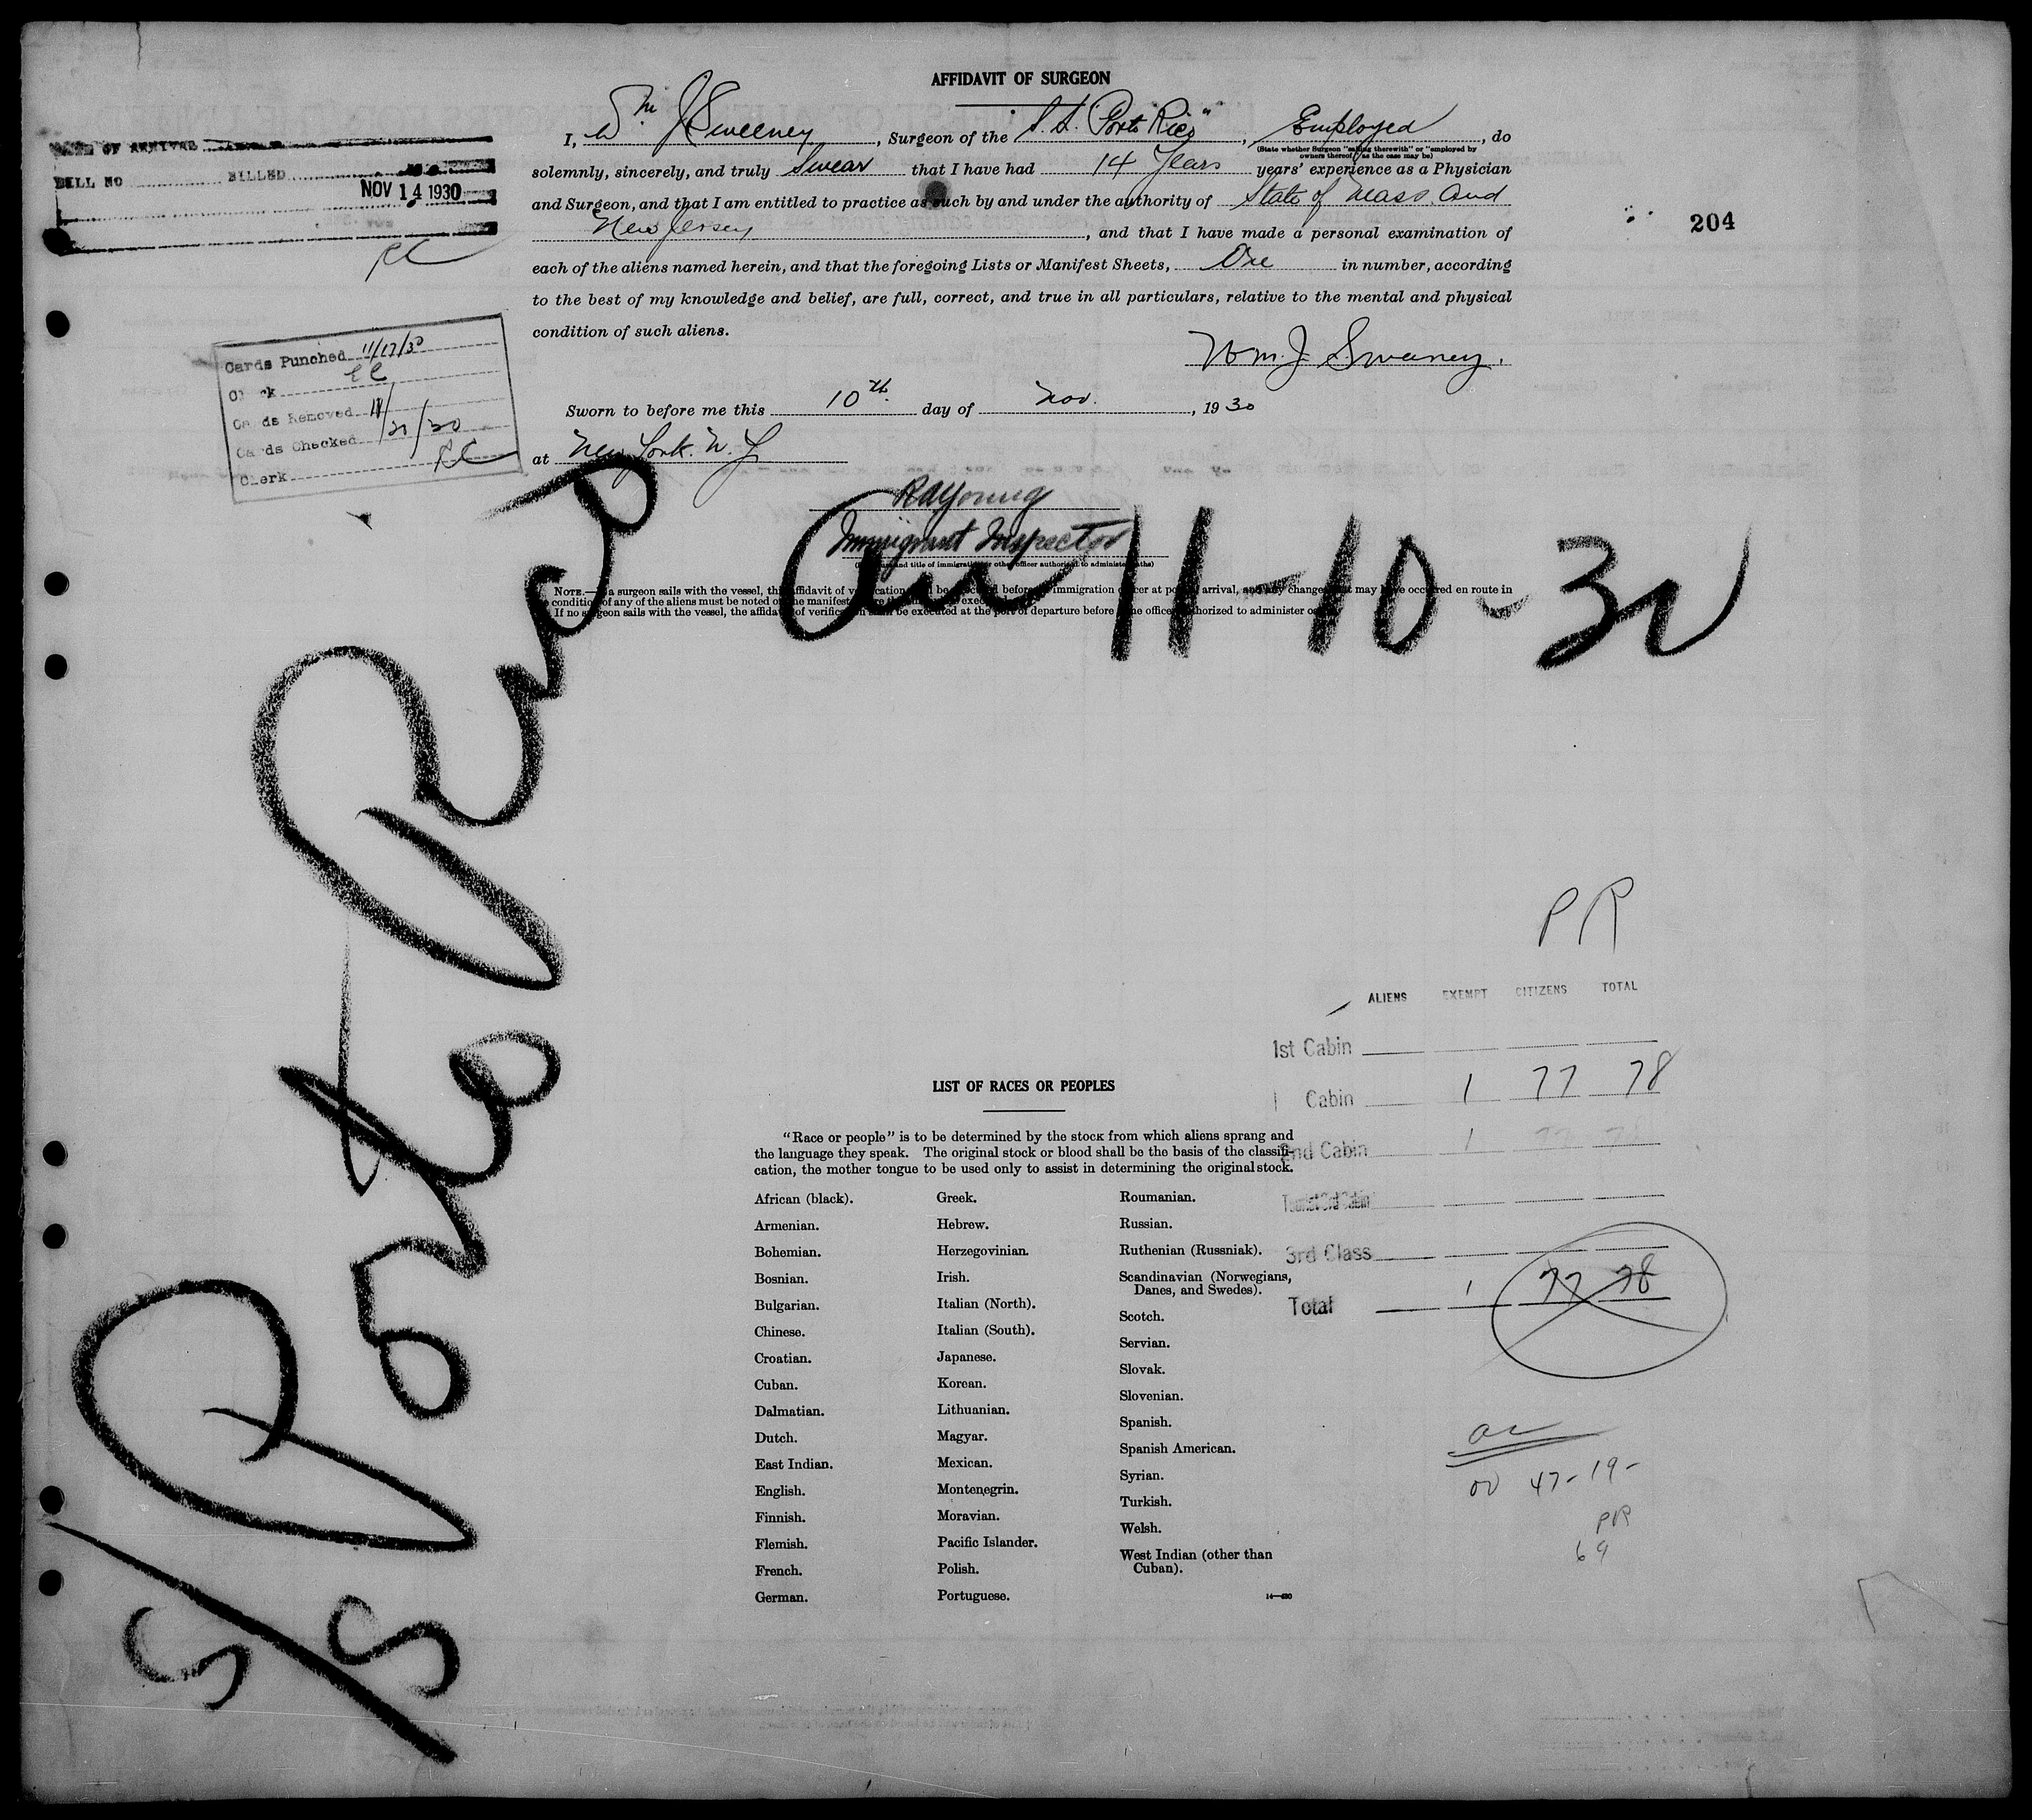 AFFIDAVIT OF SURGEON
I, Wm J Sweeney, Surgeon of the S.S. "Porto Rico", Employed, do
(State whether Surgeon "sailing therewith" or "employed by
owners thereof," as the case may be)
solemnly, sincerely, and truly Swear that I have had 14 Years years' experience as a Physician
and Surgeon, and that I am entitled to practice as such by and under the authority of State of Mass. and
New Jersey, and that I have made a personal examination of
each of the aliens named herein, and that the foregoing Lists or Manifest Sheets, One in number, according
to the best of my knowledge and belief, are full, correct, and true in all particulars, relative to the mental and physical
condition of such aliens.
Wm. J. Sweeney.
Sworn to before me this 10th day of Nov., 1930
at New York. N.Y.
RA Young
Immigrant Inspector
DATE OF ARRIVAL
BILL NO BILLED
NOV 14 1930
204
Cards Punched 11/17/30
Cards Removed 11/
Cards Checked 21/30
Clerk
NOTE.—If a surgeon sails with the vessel, this affidavit of verification before immigration officer at port of arrival, and any changes that may have occurred en route in
condition of any of the aliens must be noted on the manifest
If no surgeon sails with the vessel, the affidavit of verification shall be executed at the port of departure before the officer authorized to administer
11-10-30
S/S Porto Rico
PR
ALIENS EXEMPT CITIZENS TOTAL
1st Cabin
Cabin 1 77 78
2nd Cabin 1 77 78
Tourist 3rd Cabin
3rd Class
Total 1 77 78
47-19-
PR
69
LIST OF RACES OR PEOPLES
"Race or people" is to be determined by the stock from which aliens sprang and
the language they speak. The original stock or blood shall be the basis of the classifi-
cation, the mother tongue to be used only to assist in determining the original stock.
African (black).
Armenian.
Bohemian.
Bosnian.
Bulgarian.
Chinese.
Croatian.
Cuban.
Dalmatian.
Dutch.
East Indian.
English.
Finnish.
Flemish.
French.
German.
Greek.
Hebrew.
Herzegovinian.
Irish.
Italian (North).
Italian (South).
Japanese.
Korean.
Lithuanian.
Magyar.
Mexican.
Montenegrin.
Moravian.
Pacific Islander.
Polish.
Portuguese.
Roumanian.
Russian.
Ruthenian (Russniak).
Scandinavian (Norwegians,
Danes, and Swedes).
Scotch.
Servian.
Slovak.
Slovenian.
Spanish.
Spanish American.
Syrian.
Turkish.
Welsh.
West Indian (other than
Cuban).